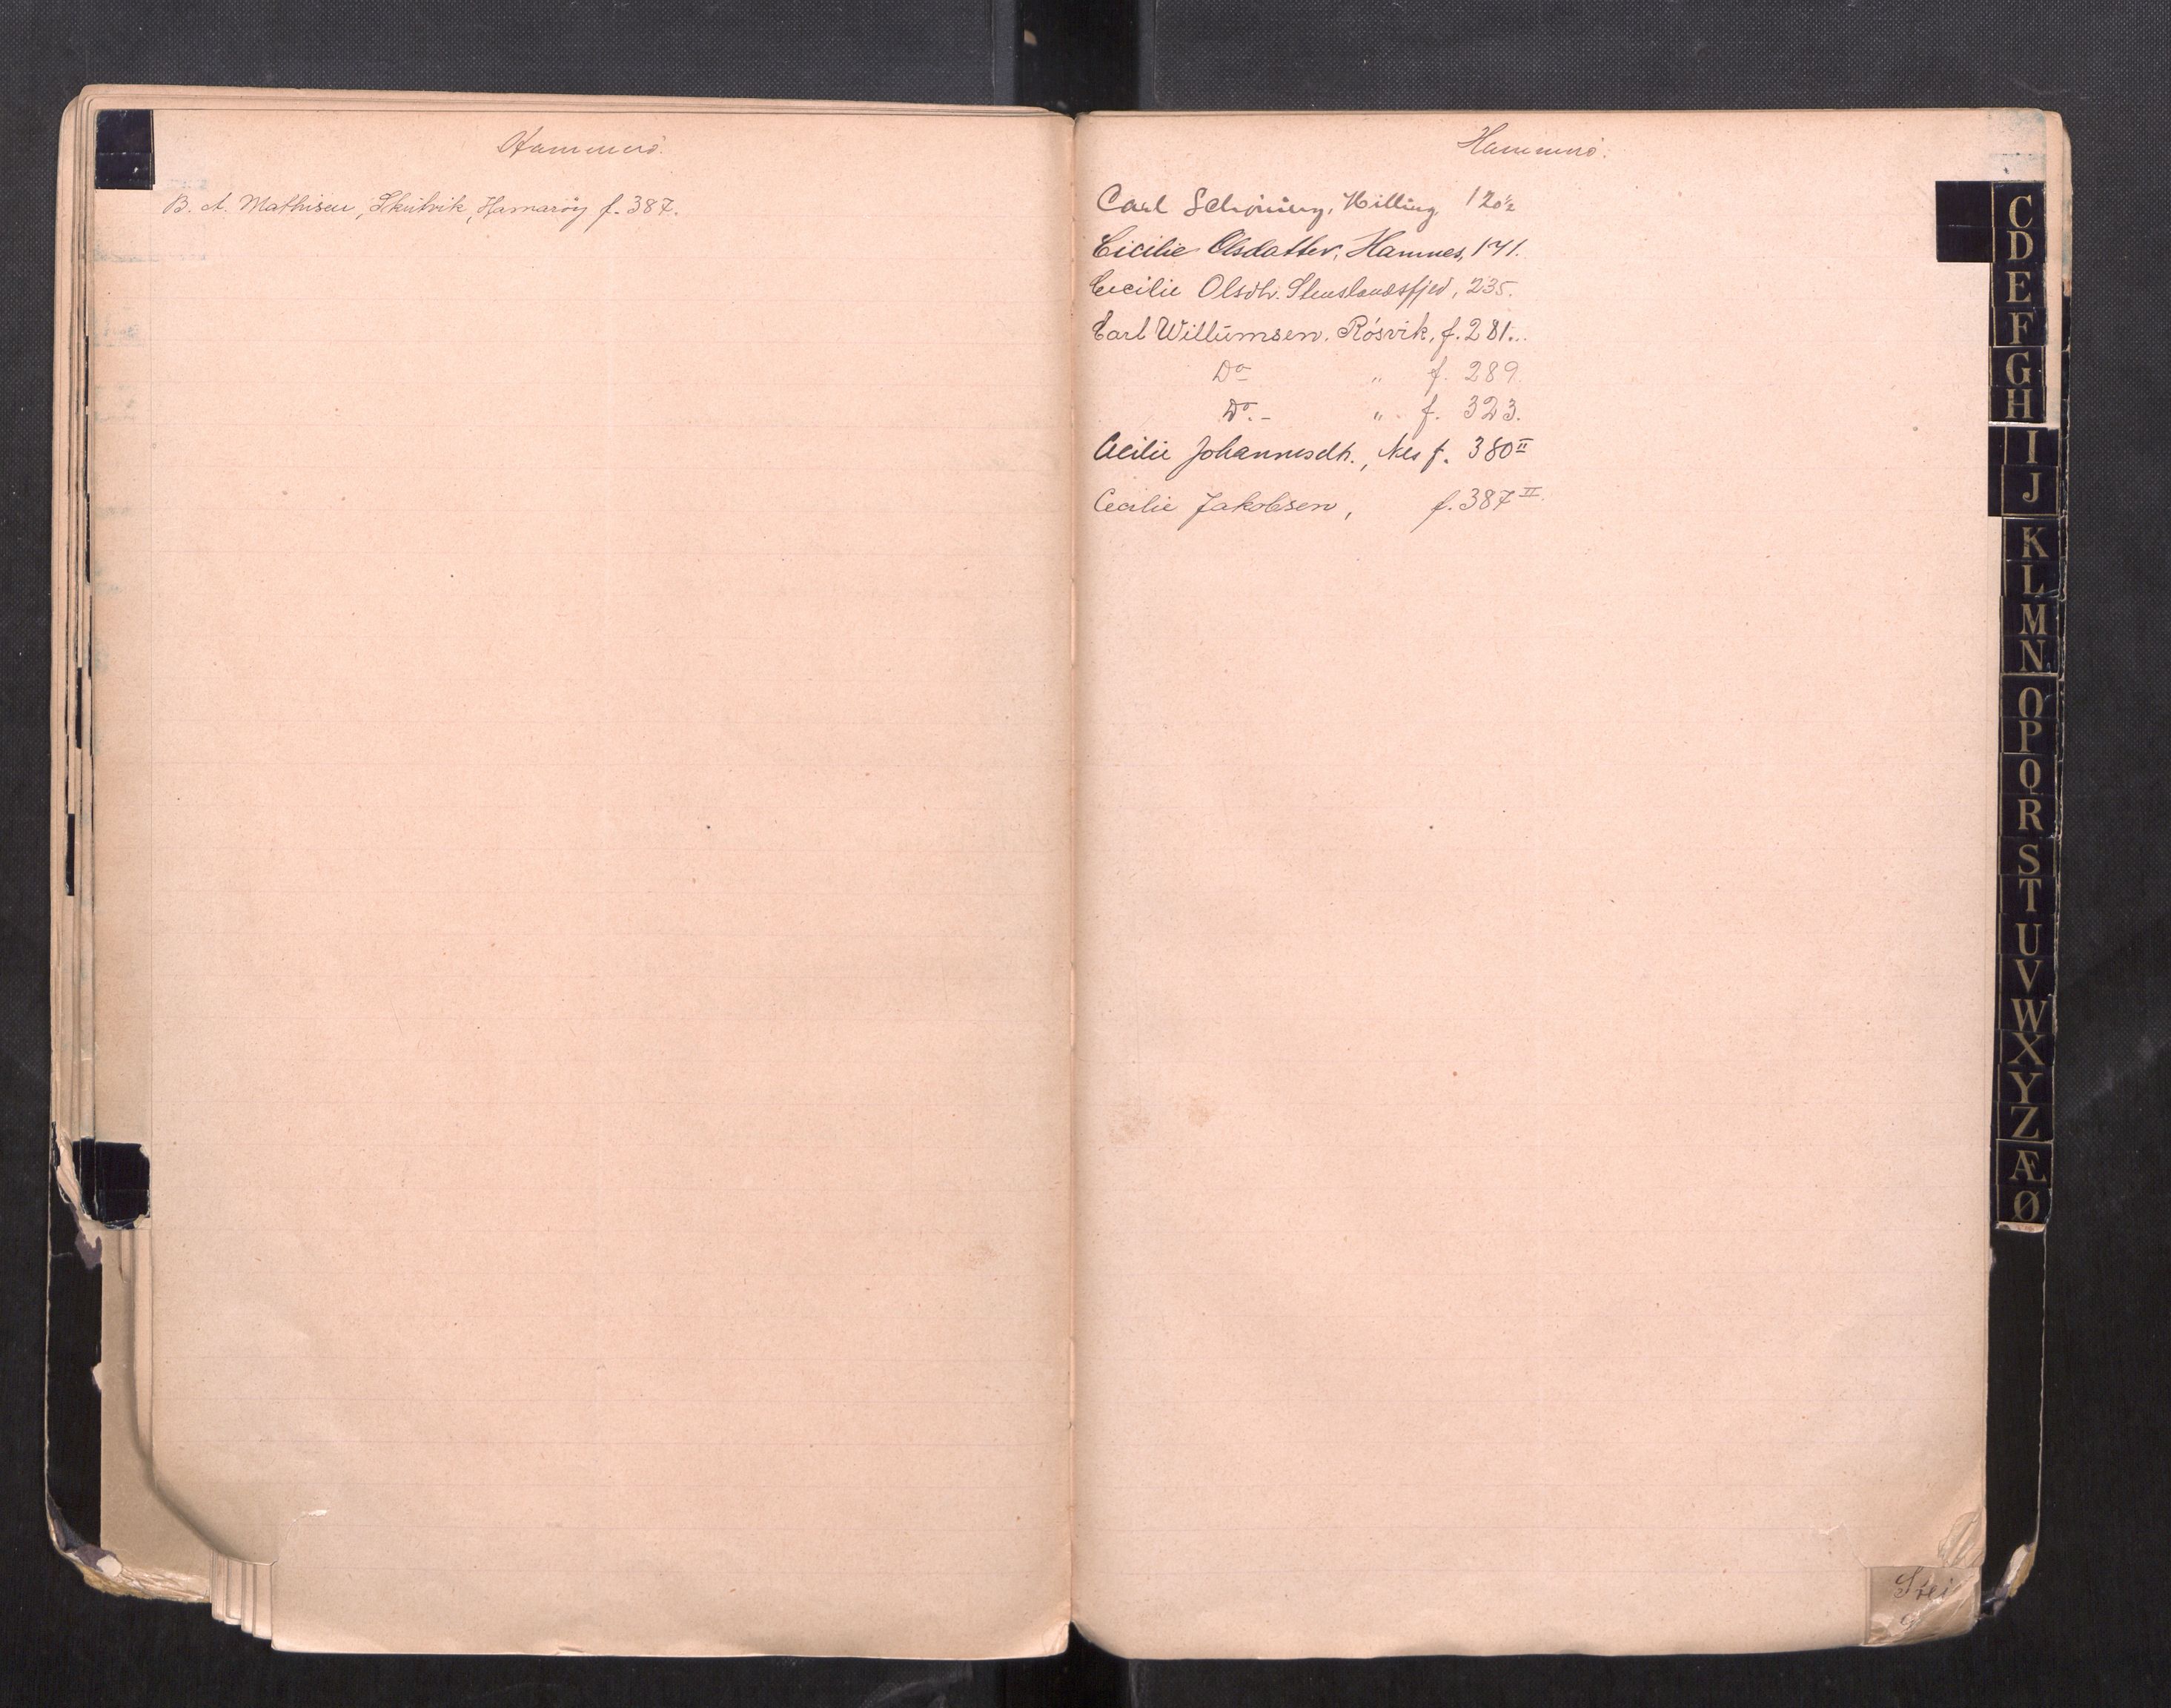 Hammerö.
B. A. Mathisen, Skutvik, Hamarøy f. 387.
Hammerö.
Carl Schöning, Hilling, 120½
Cicilie Olsdatter, Hamnes, 171.
Cecilie Olsdtr. Stenslandsfjed, 235.
Carl Willumsen. Rösvik, f. 281.
Do " f. 289.
Do.- " f. 323.
Cecilie Johannesdtr., Nes f. 380 II
Cecilie Jakobsen, f. 387 II.
C
D
E
F
G
H
I
J
K
L
M
N
O
P
Q
R
S
T
U
V
W
X
Y
Z
Æ
Ø